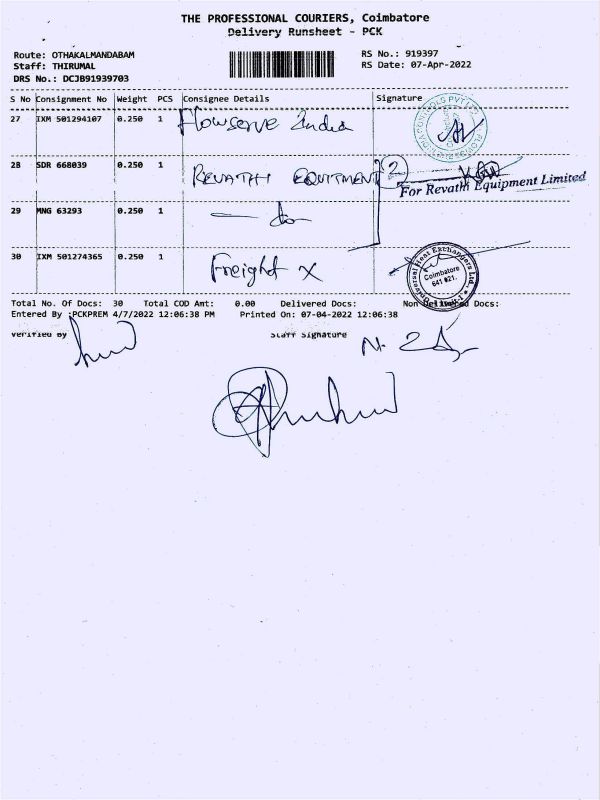 THE PROFESSIONAL COURIERS, Coimbatore
Delivery Runsheet - PCK
Route: OTHAKALMANDABAM
RS No.: 919397
Staff: THIRUMAL
RS Date: 07-Apr-2022
DRS No.: DCJB91939703
S No Consignment No Weight PCS Consignee Details Signature
27 IXM 501294107 0.250 1 Flowserve India
28 SDR 668039 0.250 1 REVATHI EQUITMENT 2
For Revathi Equipment Limited
29 MNG 63293 0.250 1
30 IXM 501274365 0.250 1 Freight x
Universal Heat Exchangers Ltd.
Coimbatore
641 021.
Total No. Of Docs: 30 Total COD Amt: 0.00 Delivered Docs: Non Delivered Docs:
Entered By :PCKPREM 4/7/2022 12:06:38 PM Printed On: 07-04-2022 12:06:38
Verified By Staff Signature